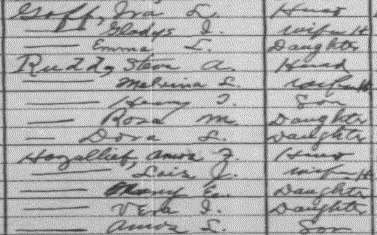 Goff, Ira L. Head
— Gladys I. Wife H
— Emma L. Daughter
Rudd, Steve A. Head
— Melvina L. Wife H
— Henry T. Son
— Rosa M Daughter
— Dora L. Daughter
Amos Z. Head
— Wife H
— Mary E. Daughter
— Vera I. Daughter
— Amos L. Son